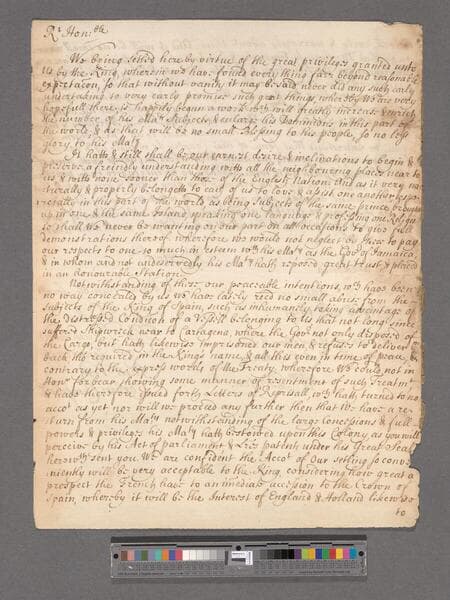 Rt Honble
We being setled here by virtue of the great priviledges granted unto
us by the King, wherein we have found every thing farr beyond reasonable
expectation, so that without vanity it may be said never did any such early
undertaking so very early promise such great things, whereby we are very
hopefull there is happily begun a work wch will greatly increase & enrich
the number of his Matys Subjects & enlarge his Dominions in this part of
the world, & as that will be no small Blessing to his people, so no less
glory to his Maty
It hath & still shall be our earnest desire & inclinations to begin &
preserve a freindly understanding with all the neighbouring places near to
us, & with none sooner than those of the English Nation: And as it very na
turally & properly belongeth to each of us to love & assist one another espe
cially in this part of the world, as being Subjects of the same prince, brought
up in one & the same Island, speaking one language & professing one Religion
so shall We never be wanting on our part on all occasions to give full
demonstrations thereof, wherefore we would not neglect in these to pay
our respects to one so much in esteem with his Maty as the Govr of Jamaica
& in whom and not undeservedly his Maty hath reposed great trust & placed
in an honourable Station.
Notwithstanding of these our peaceable intentions, wch have been
no way concealed by us we have lately recd no small abuse from the
Subjects of the King of Spain, in their inhumanely taking advantage of
the distressed Condition of a Vessell belonging to us that not long since
suffered Shipwrick near to Cartagena, where the Govr not only disposed of
the Cargo, but hath likewise imprisoned our men & refuses to deliver
back tho required in the Kings name, & all this even in time of peace &
contrary to the express words of the Treaty, wherefore We could not in
Honr forbear showing some manner of resentment of such Treatmt
& have therefore issued forth Letters of Reprisall, wch hath turned to no
acct as yet nor will we proceed any further then that till we have a re-
turn from his Maty notwithstanding of the large Concessions & full
powers & priviledges his Maty hath bestowed upon this Colony, as you will
perceive by his Act of parliament & Lrs patent under his Great Seal
herewith sent you. We are confident the Acct of Our setling so conve-
niently will be very acceptable to the King, considering how great a
prospect the French have to an immediate accession to the Crown of
Spain, whereby it will be the Interest of England & Holland likewise
to